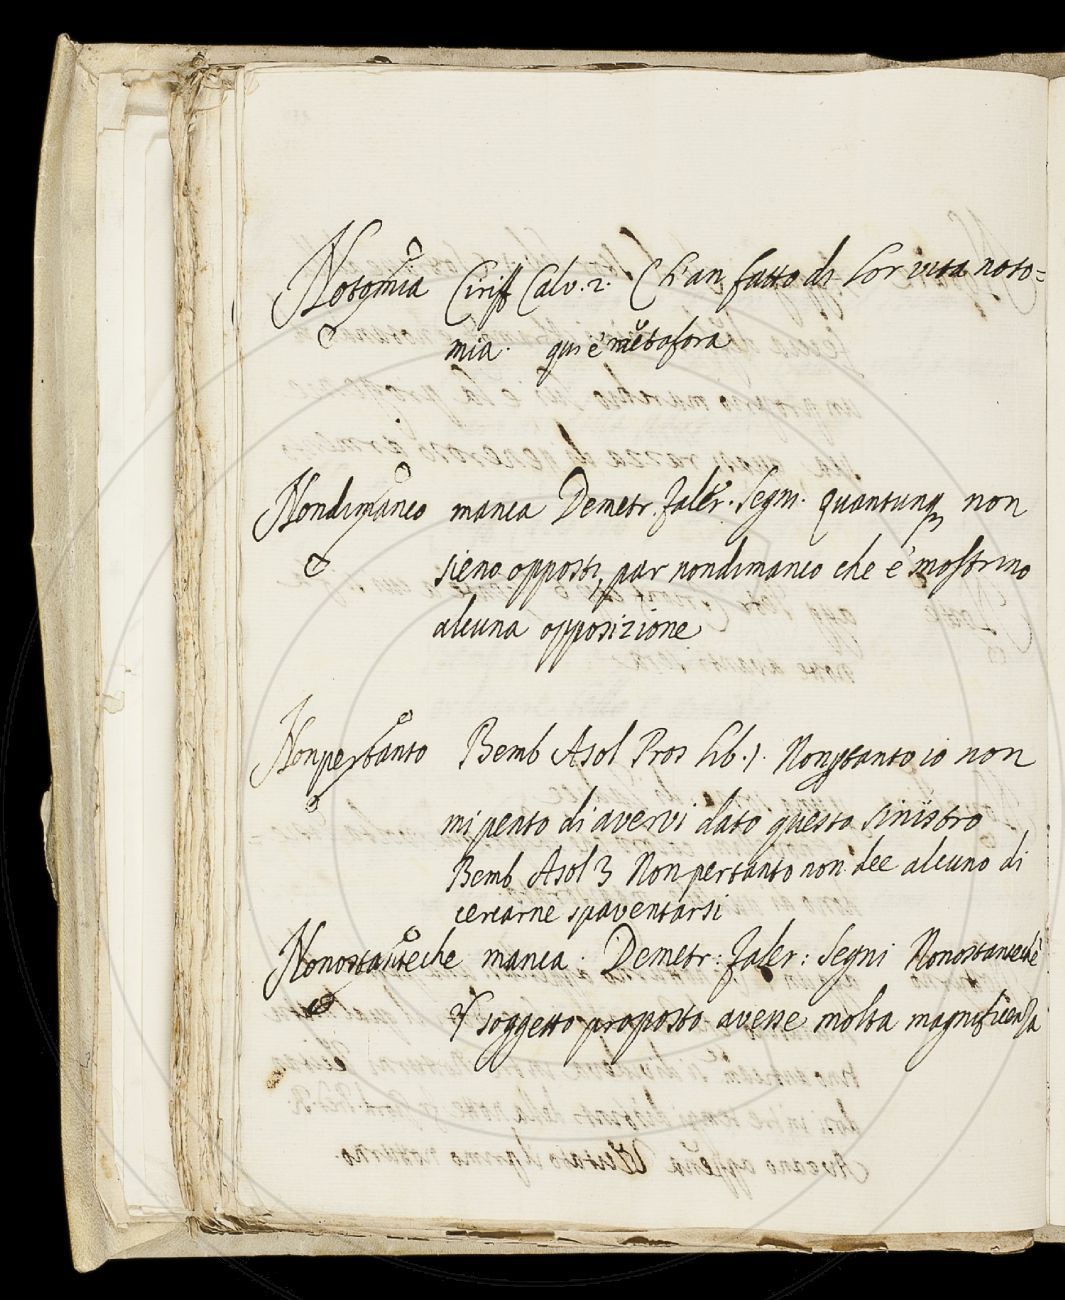 Notomia Ciriff Calv. 2. Ch'an fatto di lor vita noto=
mia. qui è metafora
Nondimanco manca Demetr. Faler. Segn. quantunq non
sieno opposti, par nondimanco che e' mostrino
alcuna opposizione
Nonpertanto Bemb Asol Pros lib. 1. Nonptanto io non
mi pento di avervi dato questo sinistro
Bemb Asol 3 Non pertanto non dee alcuno di
cercarne spaventarsi
Nonostanteche manca. Demetr: Faler: Segni Nonostanteche
'l soggetto proposto avesse molta magnificenza